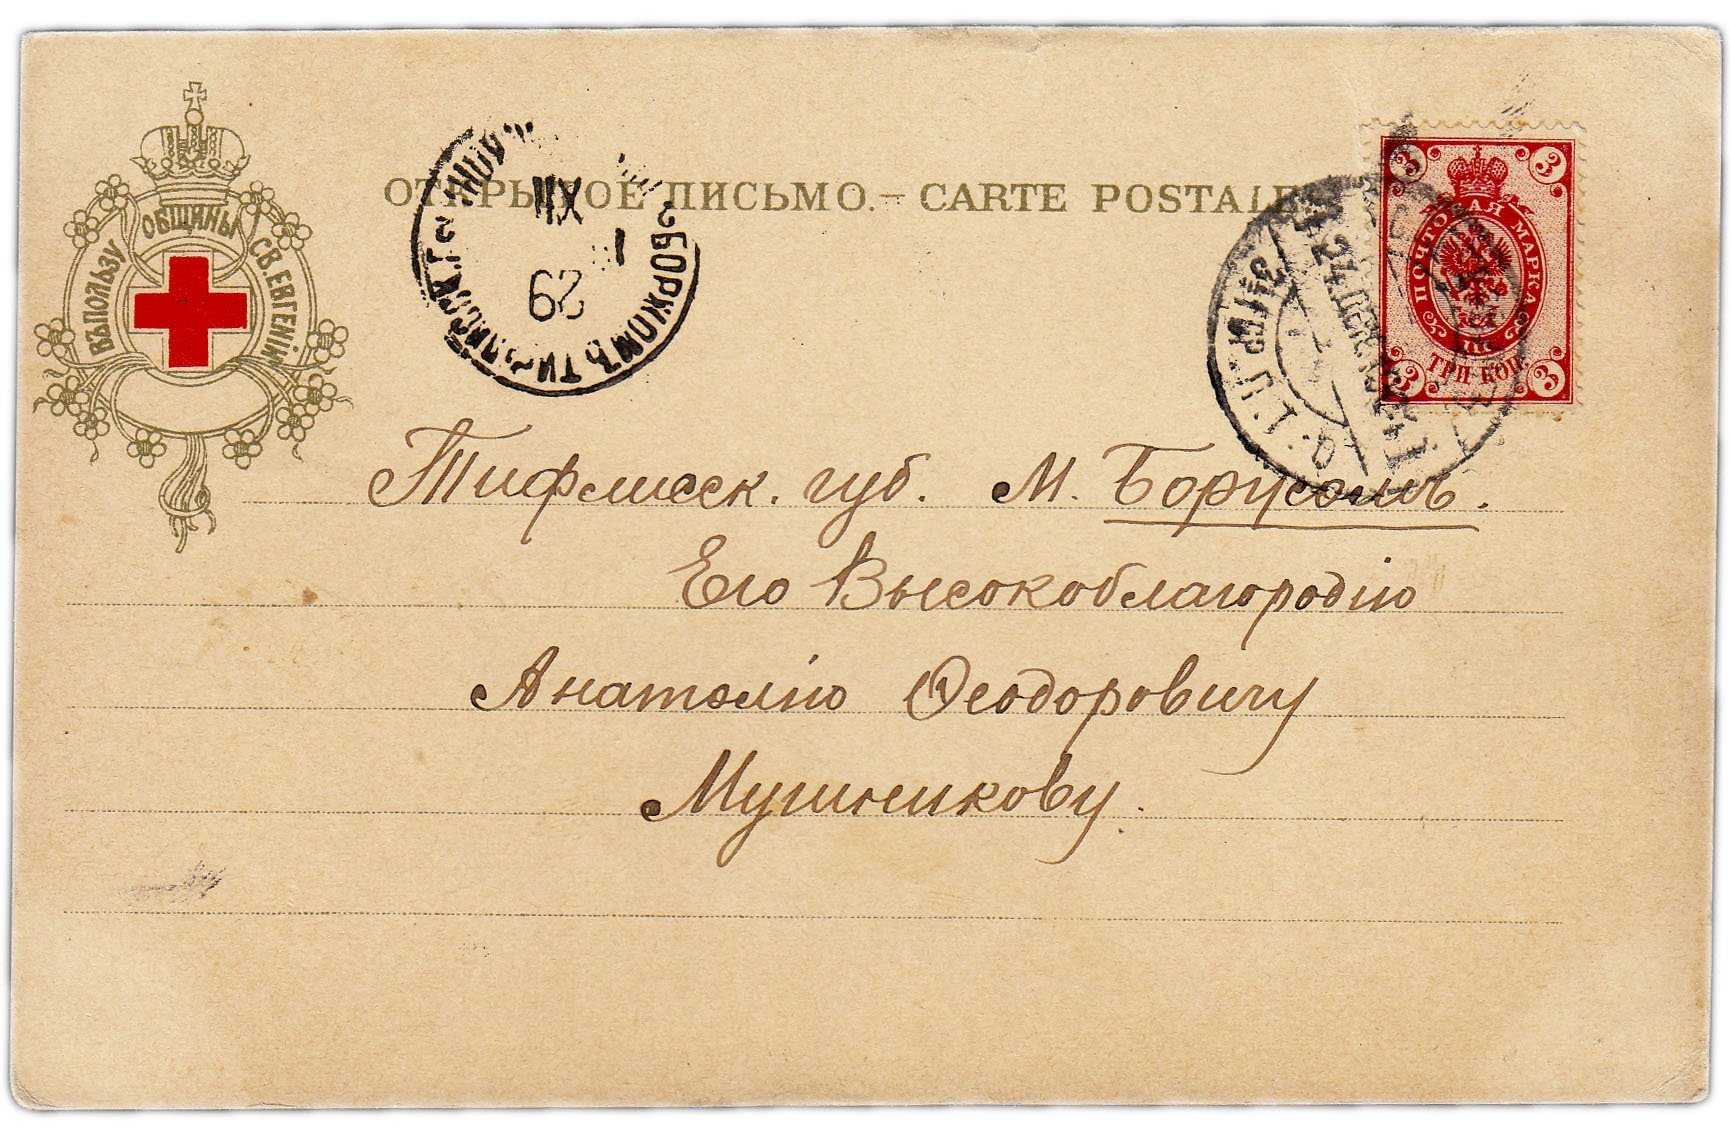 ВЪ ПОЛЬЗУ ОБЩИНЫ СВ. ЕВГЕНІИ
ОТКРЫТОЕ ПИСЬМО. — CARTE POSTALE
БОРЖОМЪ ТИФЛИССК. Г.
XII
29
3 3
ПОЧТОВАЯ МАРКА
ТРИ КОП.
3 3
Тифлисск. губ. М. Боржомъ.
Его Высокоблагородію
Анатолію Ѳеодоровичу
Мушникову.